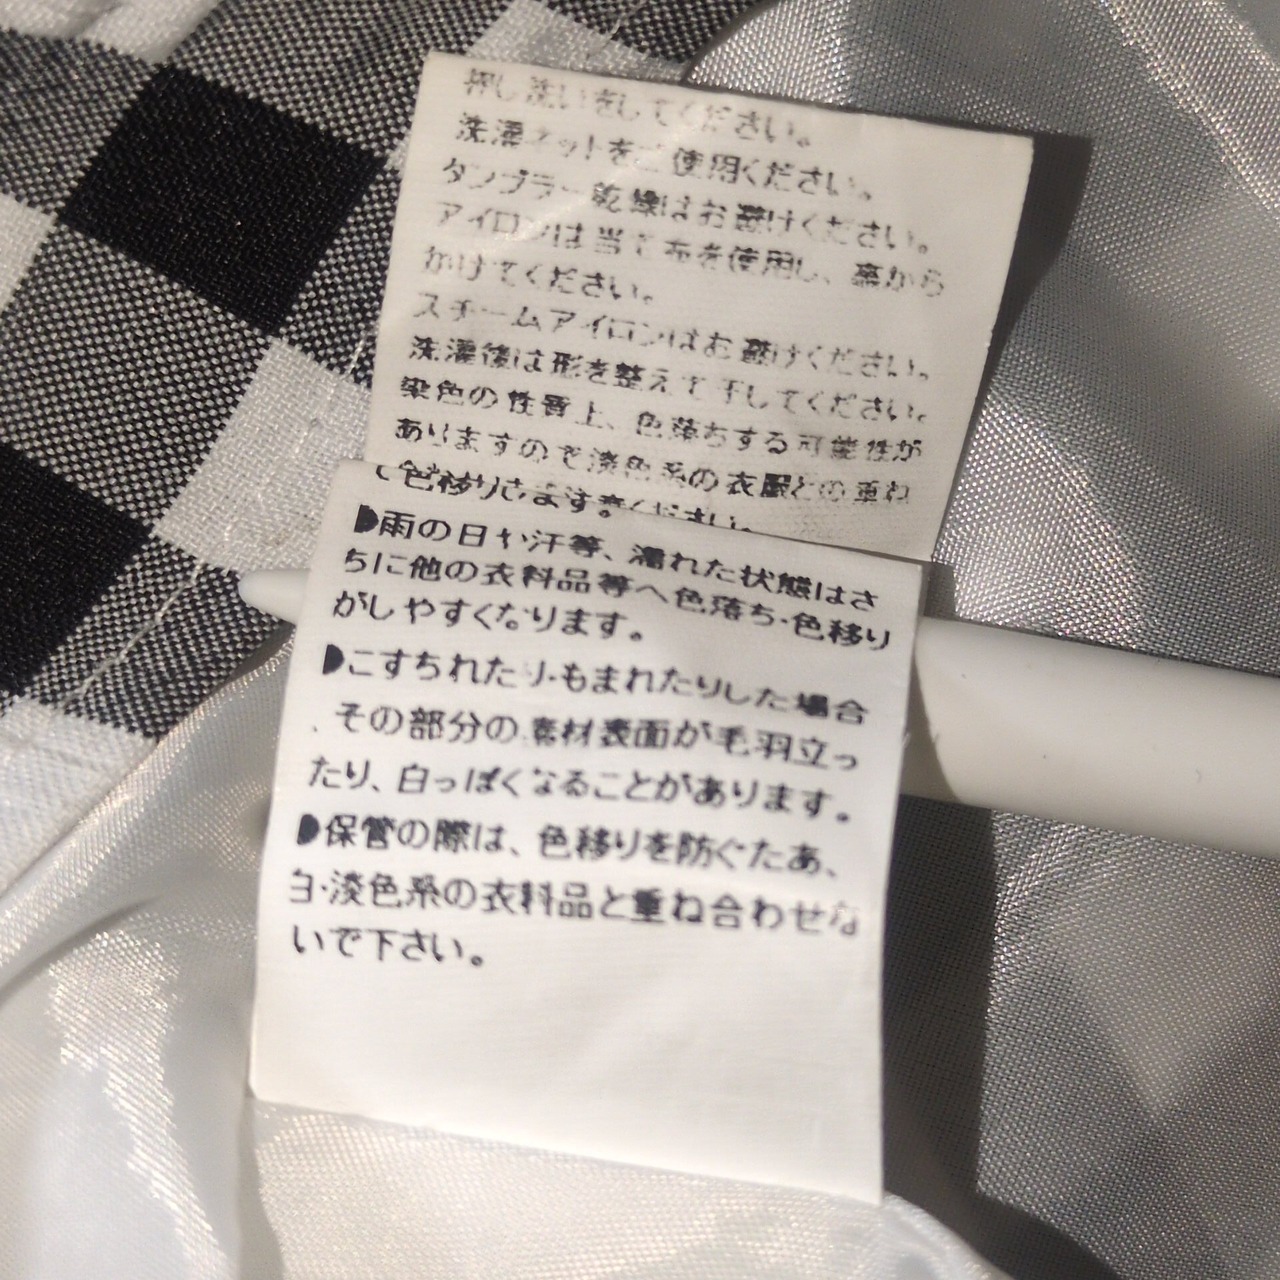 押し洗いをしてください。
洗濯ネットをご使用ください。
タンブラー乾燥はお避けください。
アイロンは当て布を使用し、裏から
かけてください。
スチームアイロンはお避けください。
洗濯後は形を整えて干してください。
染色の性質上、色落ちする可能性が
ありますので淡色系の衣服との重ね
て色移り
雨の日や汗等、濡れた状態はさ
らに他の衣料品等へ色落ち・色移り
がしやすくなります。
こすられたり・もまれたりした場合
、その部分の素材表面が毛羽立っ
たり、白っぽくなることがあります。
保管の際は、色移りを防ぐため、
白・淡色系の衣料品と重ね合わせな
いで下さい。